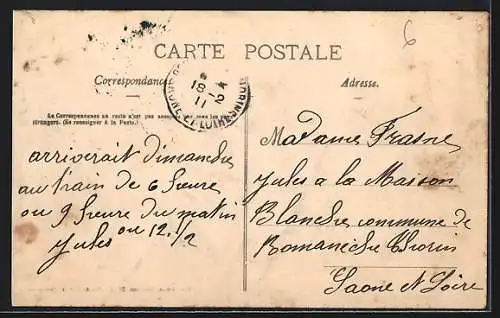 6
CARTE POSTALE
Correspondance
Adresse.
La Correspondance au recto n'est pas
étrangers. (Se renseigner à la Poste.)
18-2
11
ET LOIRE
arriverait dimanche
au train de 6 heure
ou 9 heure du matin
Jules ou 12.1/2
Madame Frasne
Jules a la Maison
Blanche commune de
Romanèche Thorin
Saone et Loire